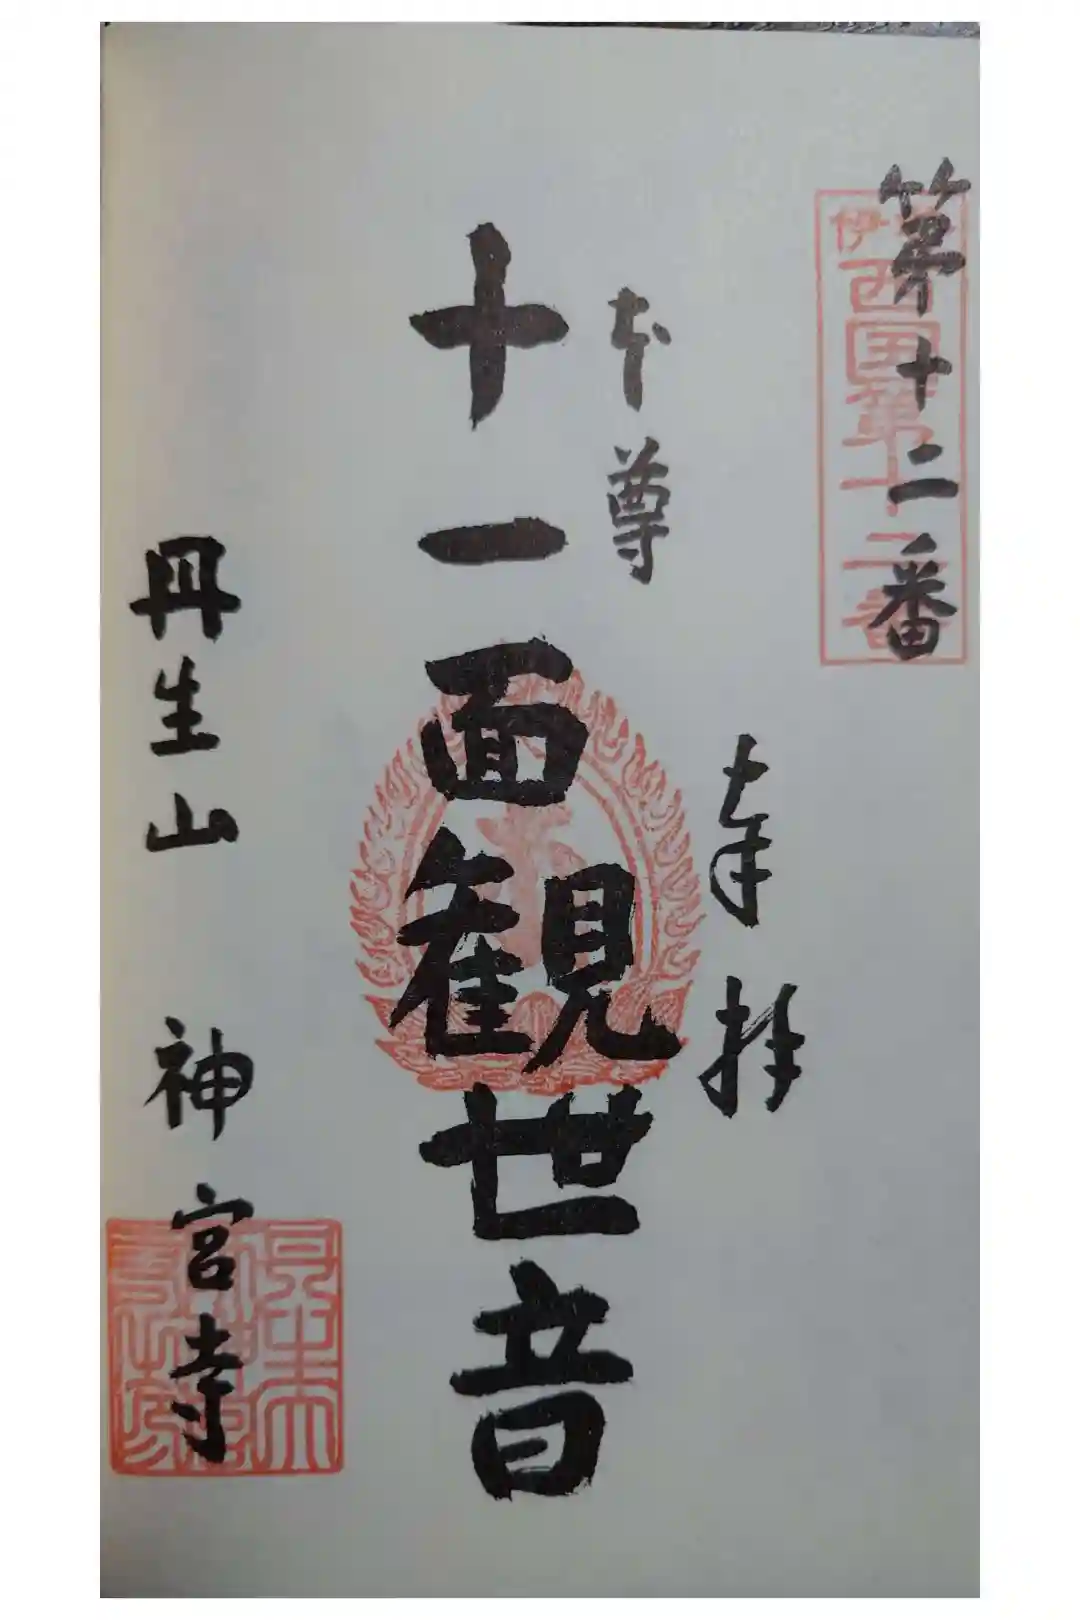 第十二番
伊 西国第十二番
奉拝
本尊
十一面観世音
丹生山 神宮寺